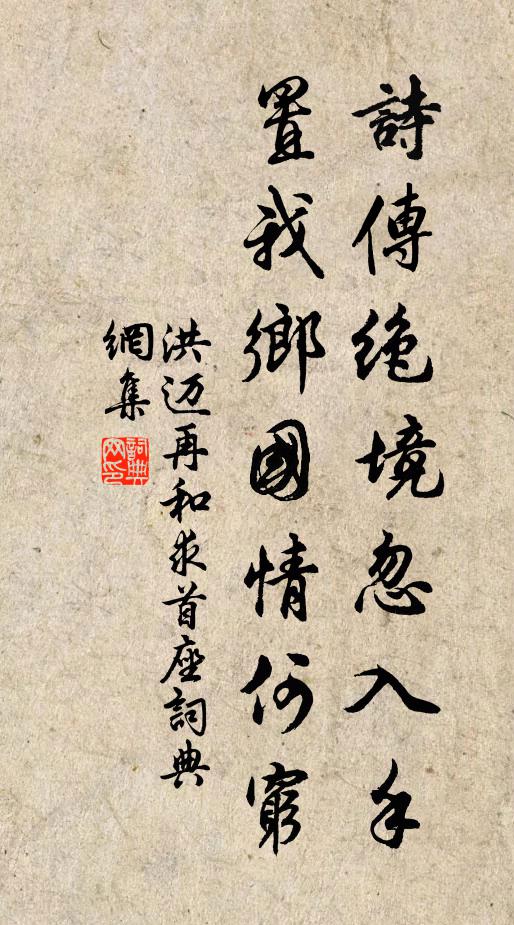 詩傳絶境忽入手
置我鄉國情何窮
洪迈再和求首座詞典
網集
詞典网印